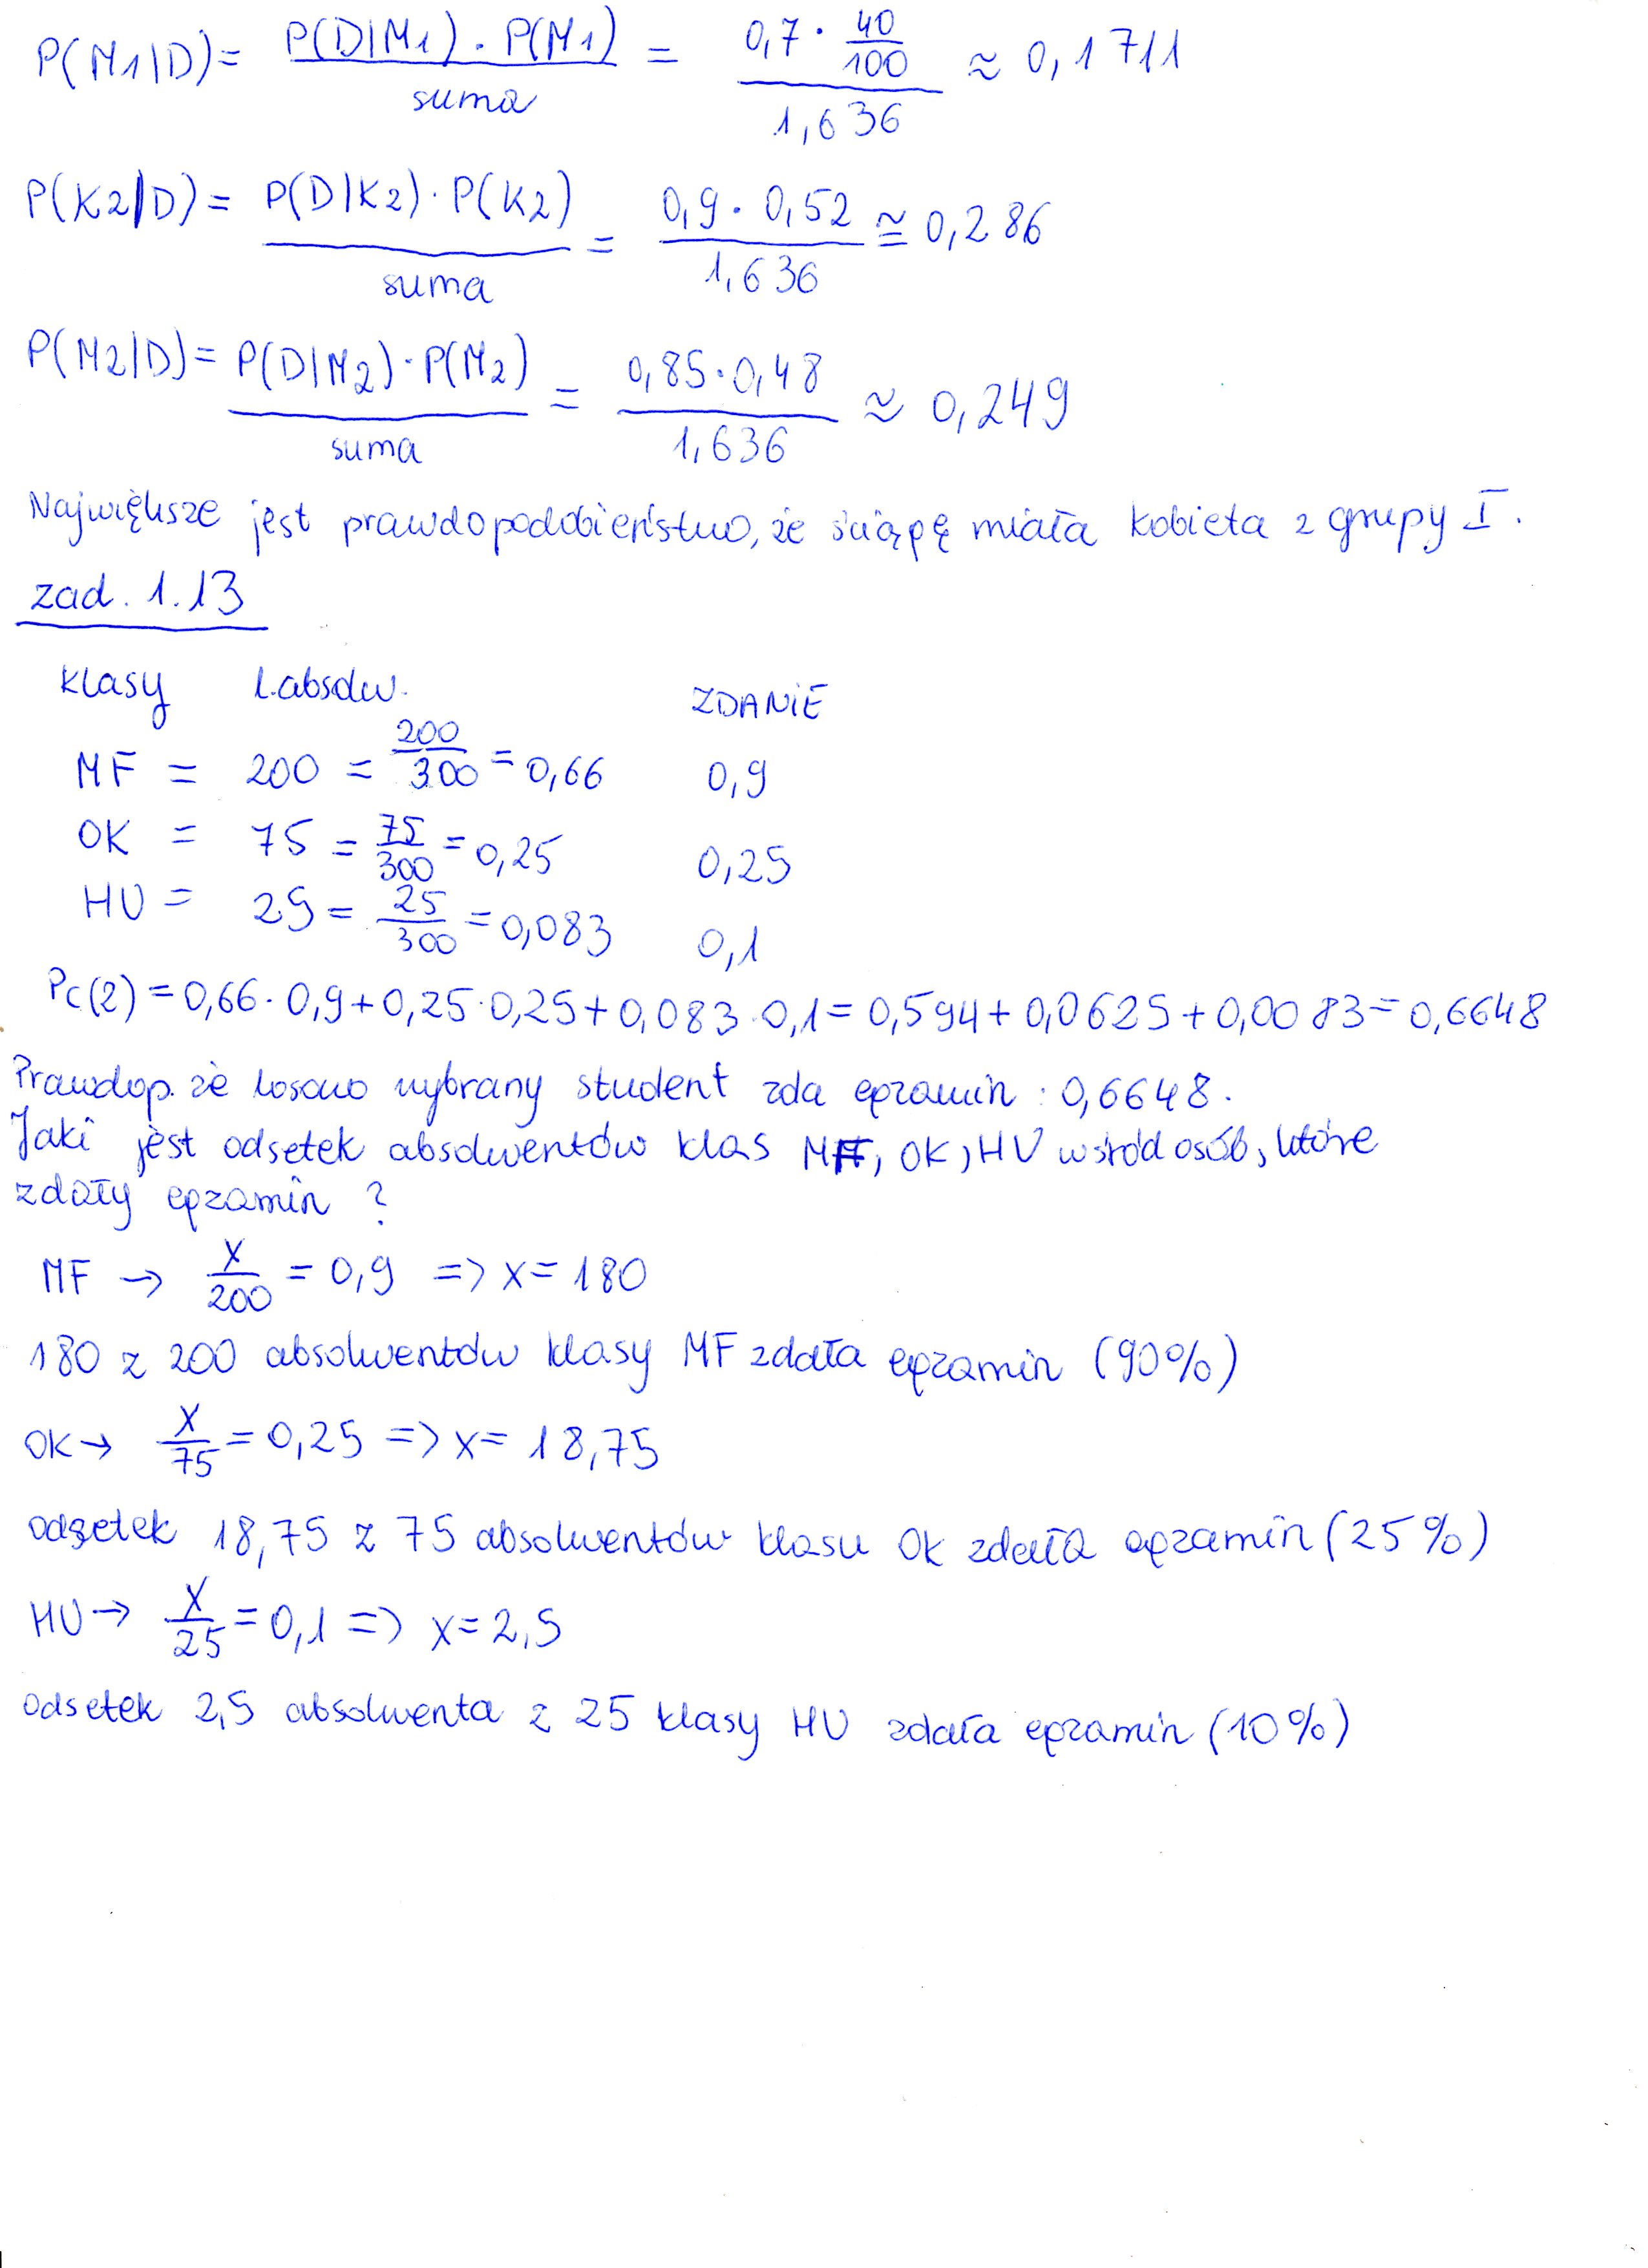 P(M1|D) = P(D|M1) · P(M1) / suma = 0,7 · 40/100 / 1,636 ≈ 0,1711
P(K2|D) = P(D|K2) · P(K2) / suma = 0,9 · 0,52 / 1,636 ≅ 0,286
P(M2|D) = P(D|M2) · P(M2) / suma = 0,85 · 0,48 / 1,636 ≈ 0,249
Największe jest prawdopodobieństwo, że ściągę miała kobieta z grupy I.
zad. 1.13
klasy l.absolw. ZDANIE
MF = 200 = 200/300 = 0,66 0,9
OK = 75 = 75/300 = 0,25 0,25
HU = 25 = 25/300 = 0,083 0,1
Pc(2) = 0,66 · 0,9 + 0,25 · 0,25 + 0,083 · 0,1 = 0,594 + 0,0625 + 0,0083 = 0,6648
Prawdop. że losowo wybrany student zda egzamin : 0,6648.
Jaki jest odsetek absolwentów klas MF, OK, HU wśród osób, które
zdały egzamin ?
MF → x/200 = 0,9 => x = 180
180 z 200 absolwentów klasy MF zdała egzamin (90%)
OK → x/75 = 0,25 => x = 18,75
odsetek 18,75 z 75 absolwentów klasu OK zdała egzamin (25%)
HU → x/25 = 0,1 => x = 2,5
odsetek 2,5 absolwenta z 25 klasy HU zdała egzamin (10%)